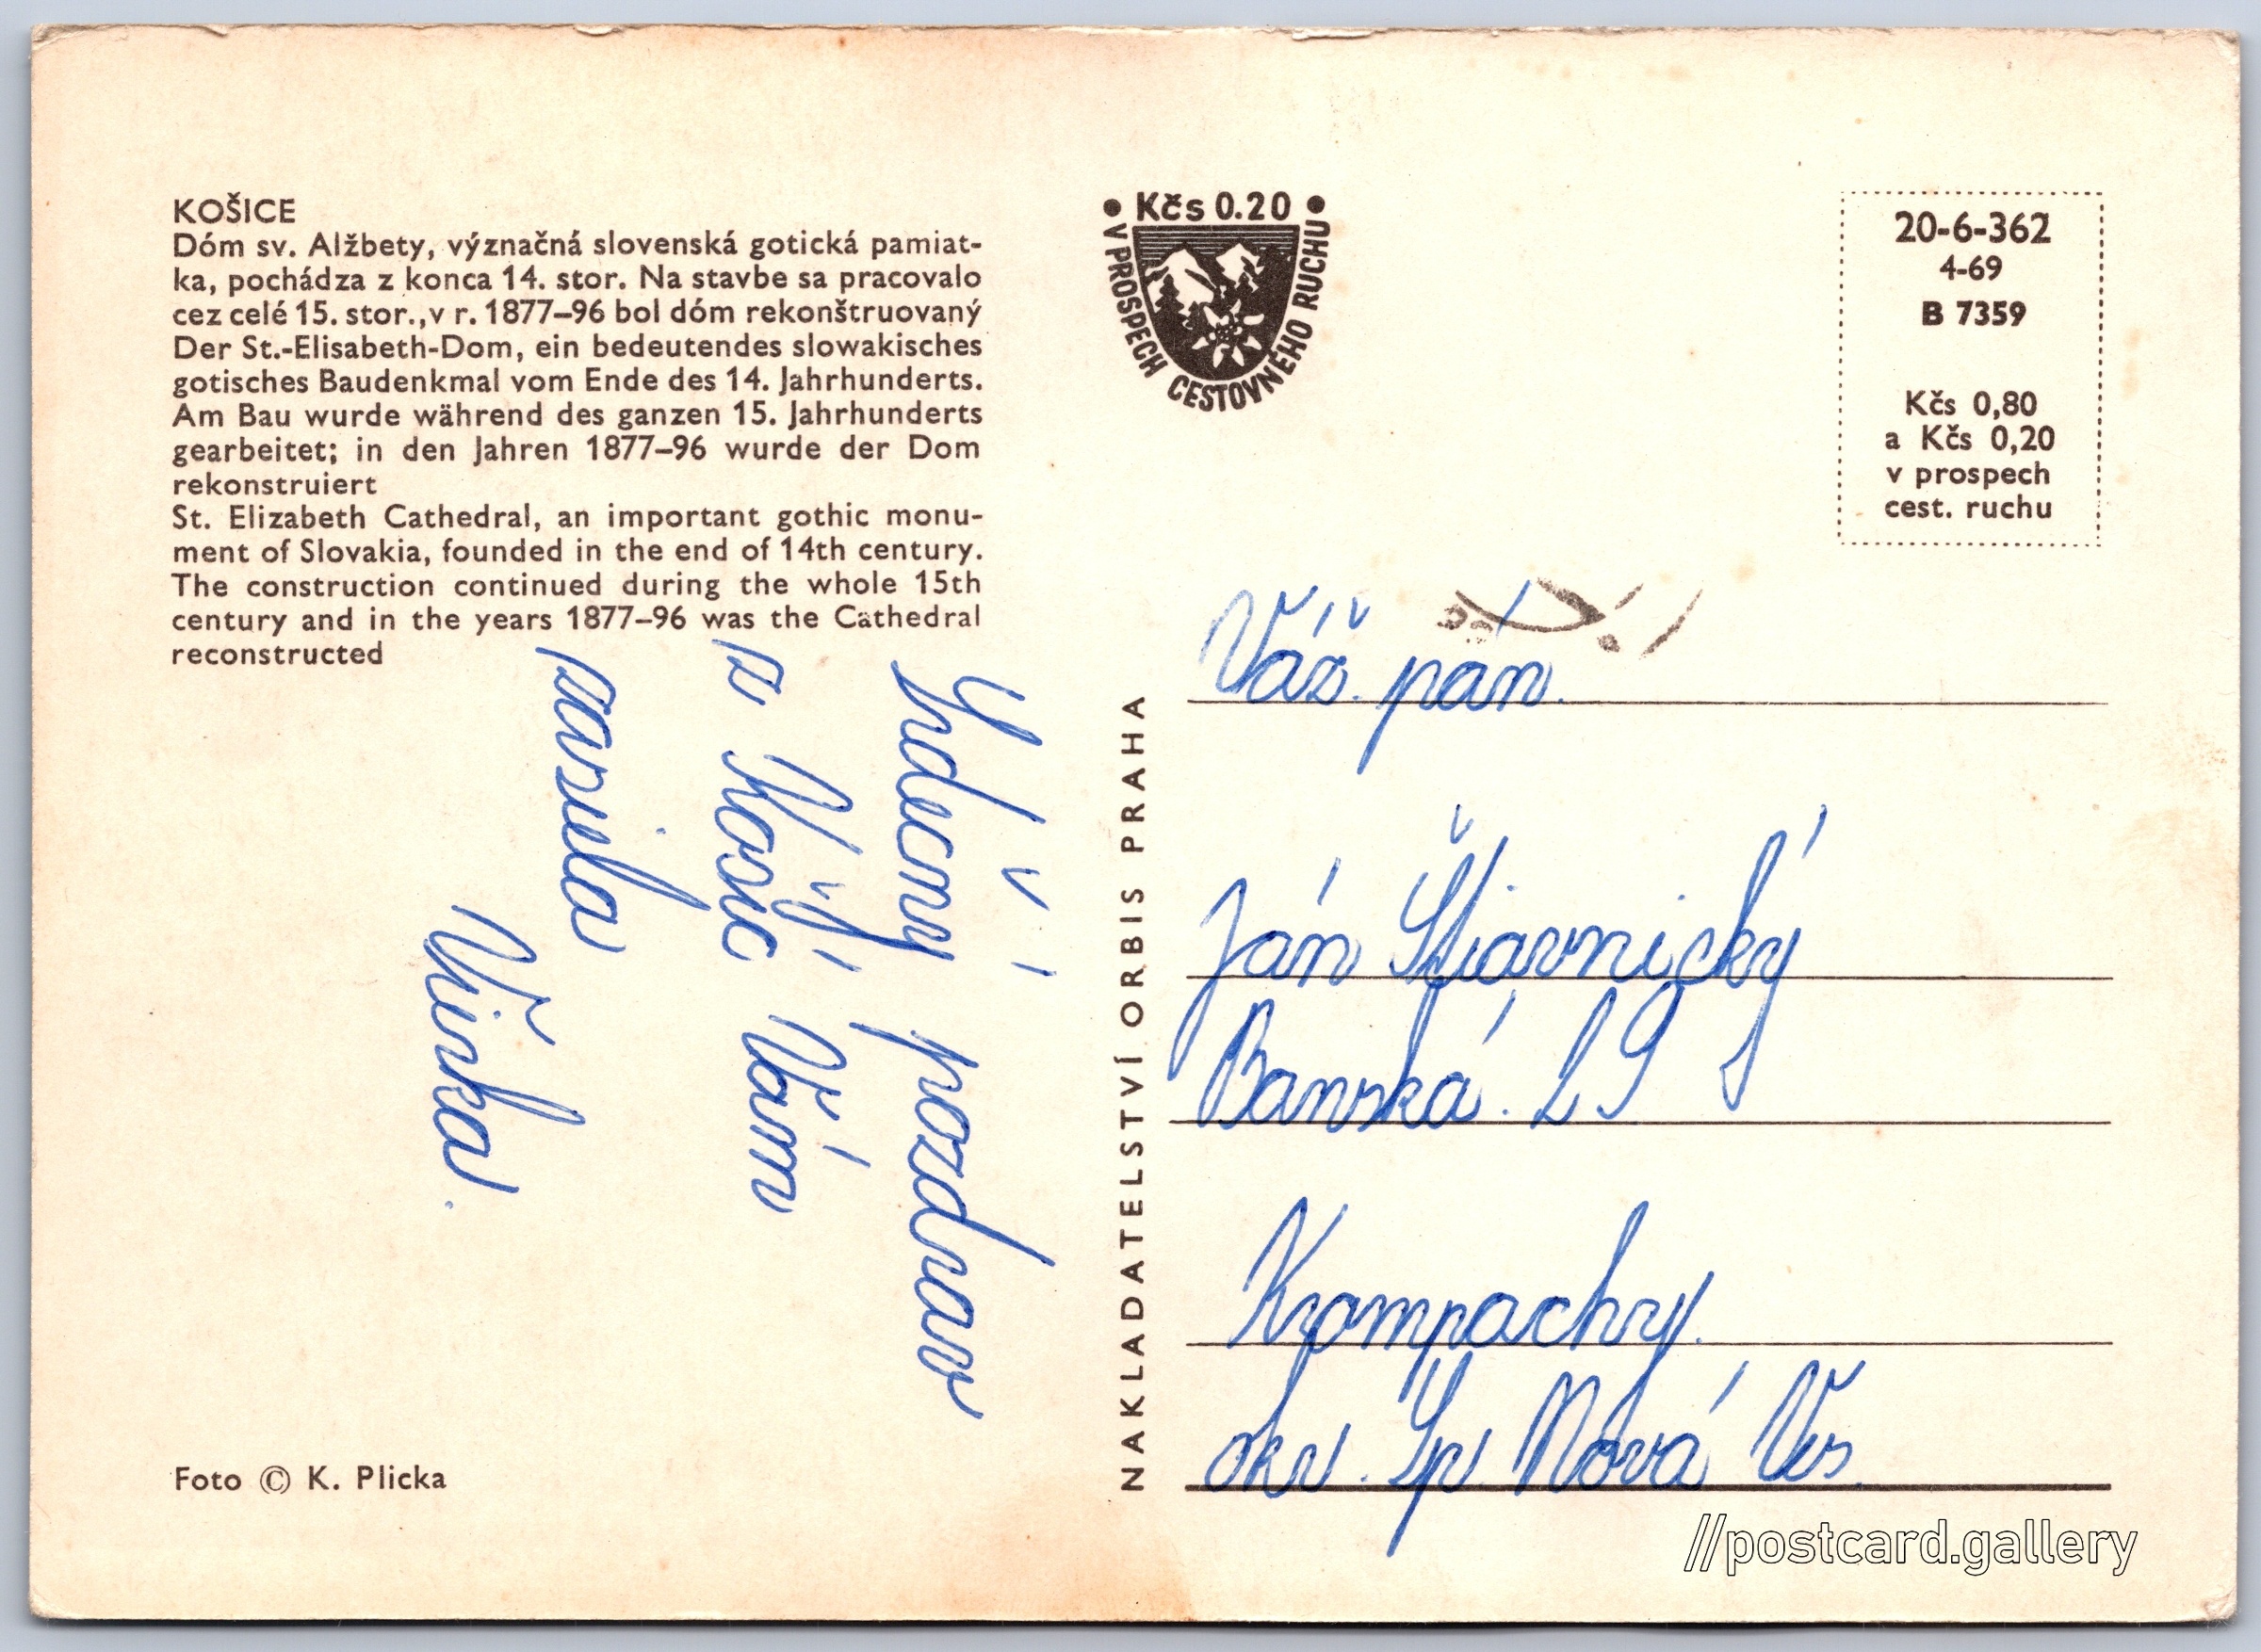 KOŠICE
Dóm sv. Alžbety, význačná slovenská gotická pamiat-
ka, pochádza z konca 14. stor. Na stavbe sa pracovalo
cez celé 15. stor., v r. 1877–96 bol dóm rekonštruovaný
Der St.-Elisabeth-Dom, ein bedeutendes slowakisches
gotisches Baudenkmal vom Ende des 14. Jahrhunderts.
Am Bau wurde während des ganzen 15. Jahrhunderts
gearbeitet; in den Jahren 1877–96 wurde der Dom
rekonstruiert
St. Elizabeth Cathedral, an important gothic monu-
ment of Slovakia, founded in the end of 14th century.
The construction continued during the whole 15th
century and in the years 1877–96 was the Cathedral
reconstructed
Srdečný pozdrav
z Košíc Vám
posiela
Vierka.
Foto © K. Plicka
NAKLADATELSTVÍ ORBIS PRAHA
• Kčs 0.20 •
V PROSPECH CESTOVNÉHO RUCHU
20-6-362
4-69
B 7359
Kčs 0,80
a Kčs 0,20
v prospech
cest. ruchu
Váž. pán.
Ján Štiavnický
Banská. 29
Krompachy.
okr. Sp. Nová Ves.
//postcard.gallery